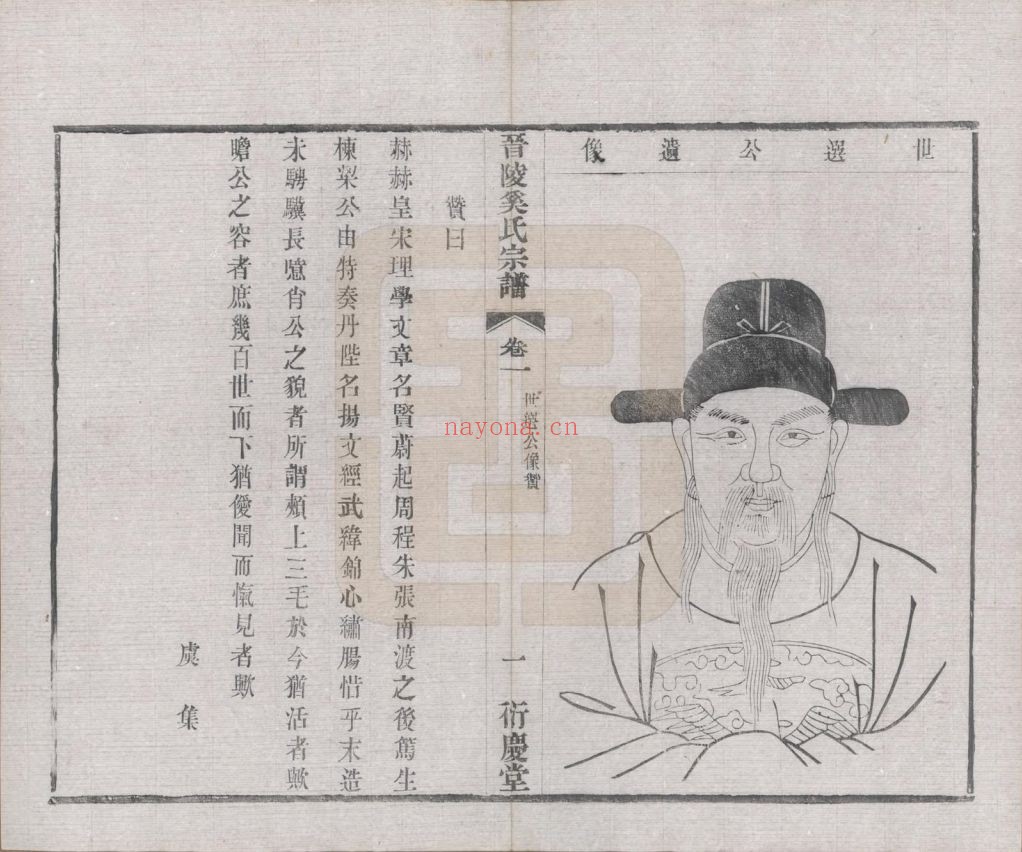 世選公遺像
晉陵奚氏宗譜 卷一 世選公像贊 一 衍慶堂
贊曰
赫赫皇宋理學文章名賢蔚起周程朱張南渡之後篤生
棟梁公由特奏丹陛名揚文經武緯錦心繡腸惜乎末造
未騁驥長噫肖公之貌者所謂頰上三毛於今猶活者歟
瞻公之容者庶幾百世而下猶僾聞而愾見者歟
虞集
nayona.cn